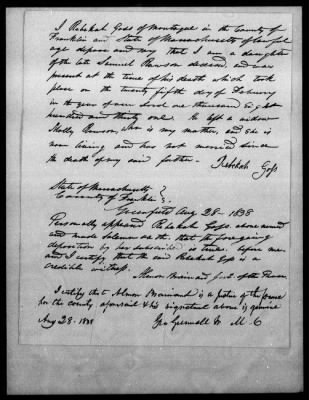 I Rebekah Goss of Montague in the County of
Franklin and State of Massachusetts of lawful
age depose and say that I am a daughter
of the late Samuel Rawson deceased, and was
present at the time of his death which took
place on the twenty fifth day of February
in the year of our Lord one thousand eight
hundred and thirty one. He left a widow
Molly Rawson, who is my mother, and she is
now living and has not married since
the death of my said father. - Rebekah Goss
State of Massachusetts
County of Franklin
Greenfield Aug 28 - 1838
Personally appeared Rebekah Goss above named
and made solemn oath that the foregoing
deposition by her subscribed is true. before me
and I certify that the said Rebekah Goss is a
credible witness.
Almon Brainard Just. of the Peace
I certify that Almon Brainard is a justice of the peace
for the county aforesaid & his signature above is genuine
Aug 28. 1838 Geo Grennell Jr M. C